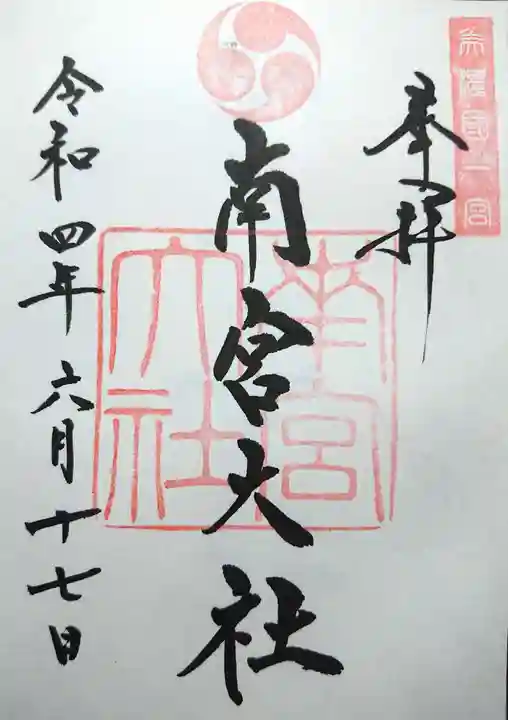 美濃國一宮
奉拝
南宮大社
南宮大社
令和四年六月十七日